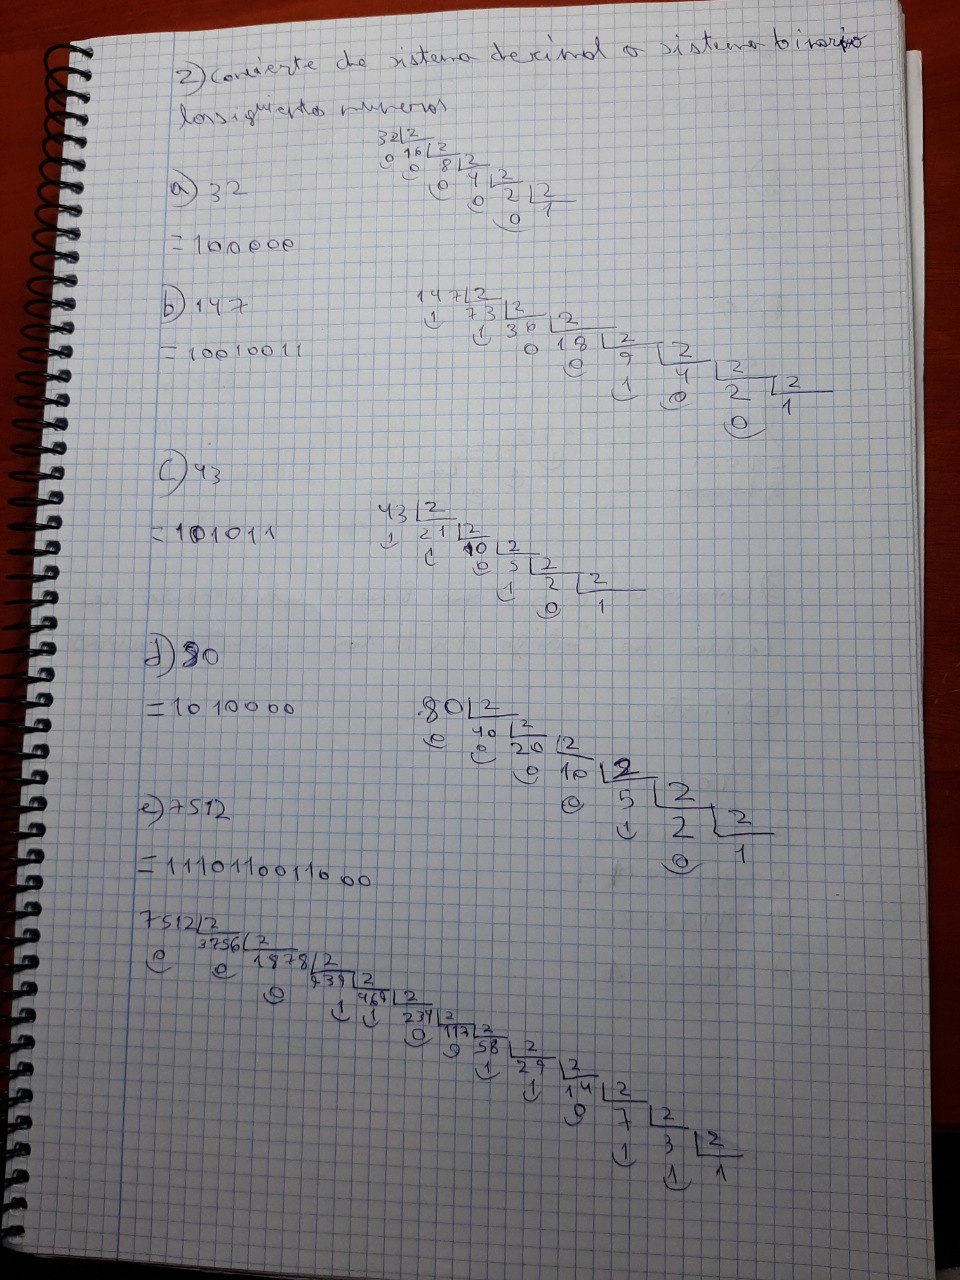 2) Convierte de sistema decimal a sistema binario
los siguientes numeros
a) 32
32 2
0 16 2
0 8 2
0 4 2
0 2 2
0 1
= 100000
b) 147
147 2
1 73 2
1 36 2
0 18 2
0 9 2
1 4 2
0 2 2
0 1
= 10010011
c) 43
43 2
1 21 2
1 10 2
0 5 2
1 2 2
0 1
= 101011
d) 80
= 1010000
80 2
0 40 2
0 20 2
0 10 2
0 5 2
1 2 2
0 1
e) 7512
= 1110110011000
7512 2
0 3756 2
0 1878 2
0 939 2
1 469 2
1 234 2
0 117 2
0 58 2
1 29 2
1 14 2
0 7 2
1 3 2
1 1